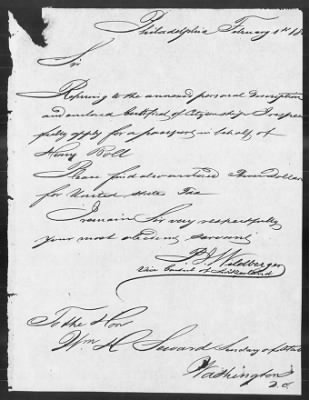 Philadelphia February 4th 18
Sir
Refering to the annexed personal Description
and enclosed Certificate of Citizenship I respect
fully apply for a passport in behalf of
Henry Boll
Please find also enclosed Three Dollars
for United State Fee
I remain Sir very respectfully
your most obedient Servant
P. J. Wildberger
Vice Consul of Switzerland
To the Hon
Wm H Seward Secretary of State
Washington
D.C.